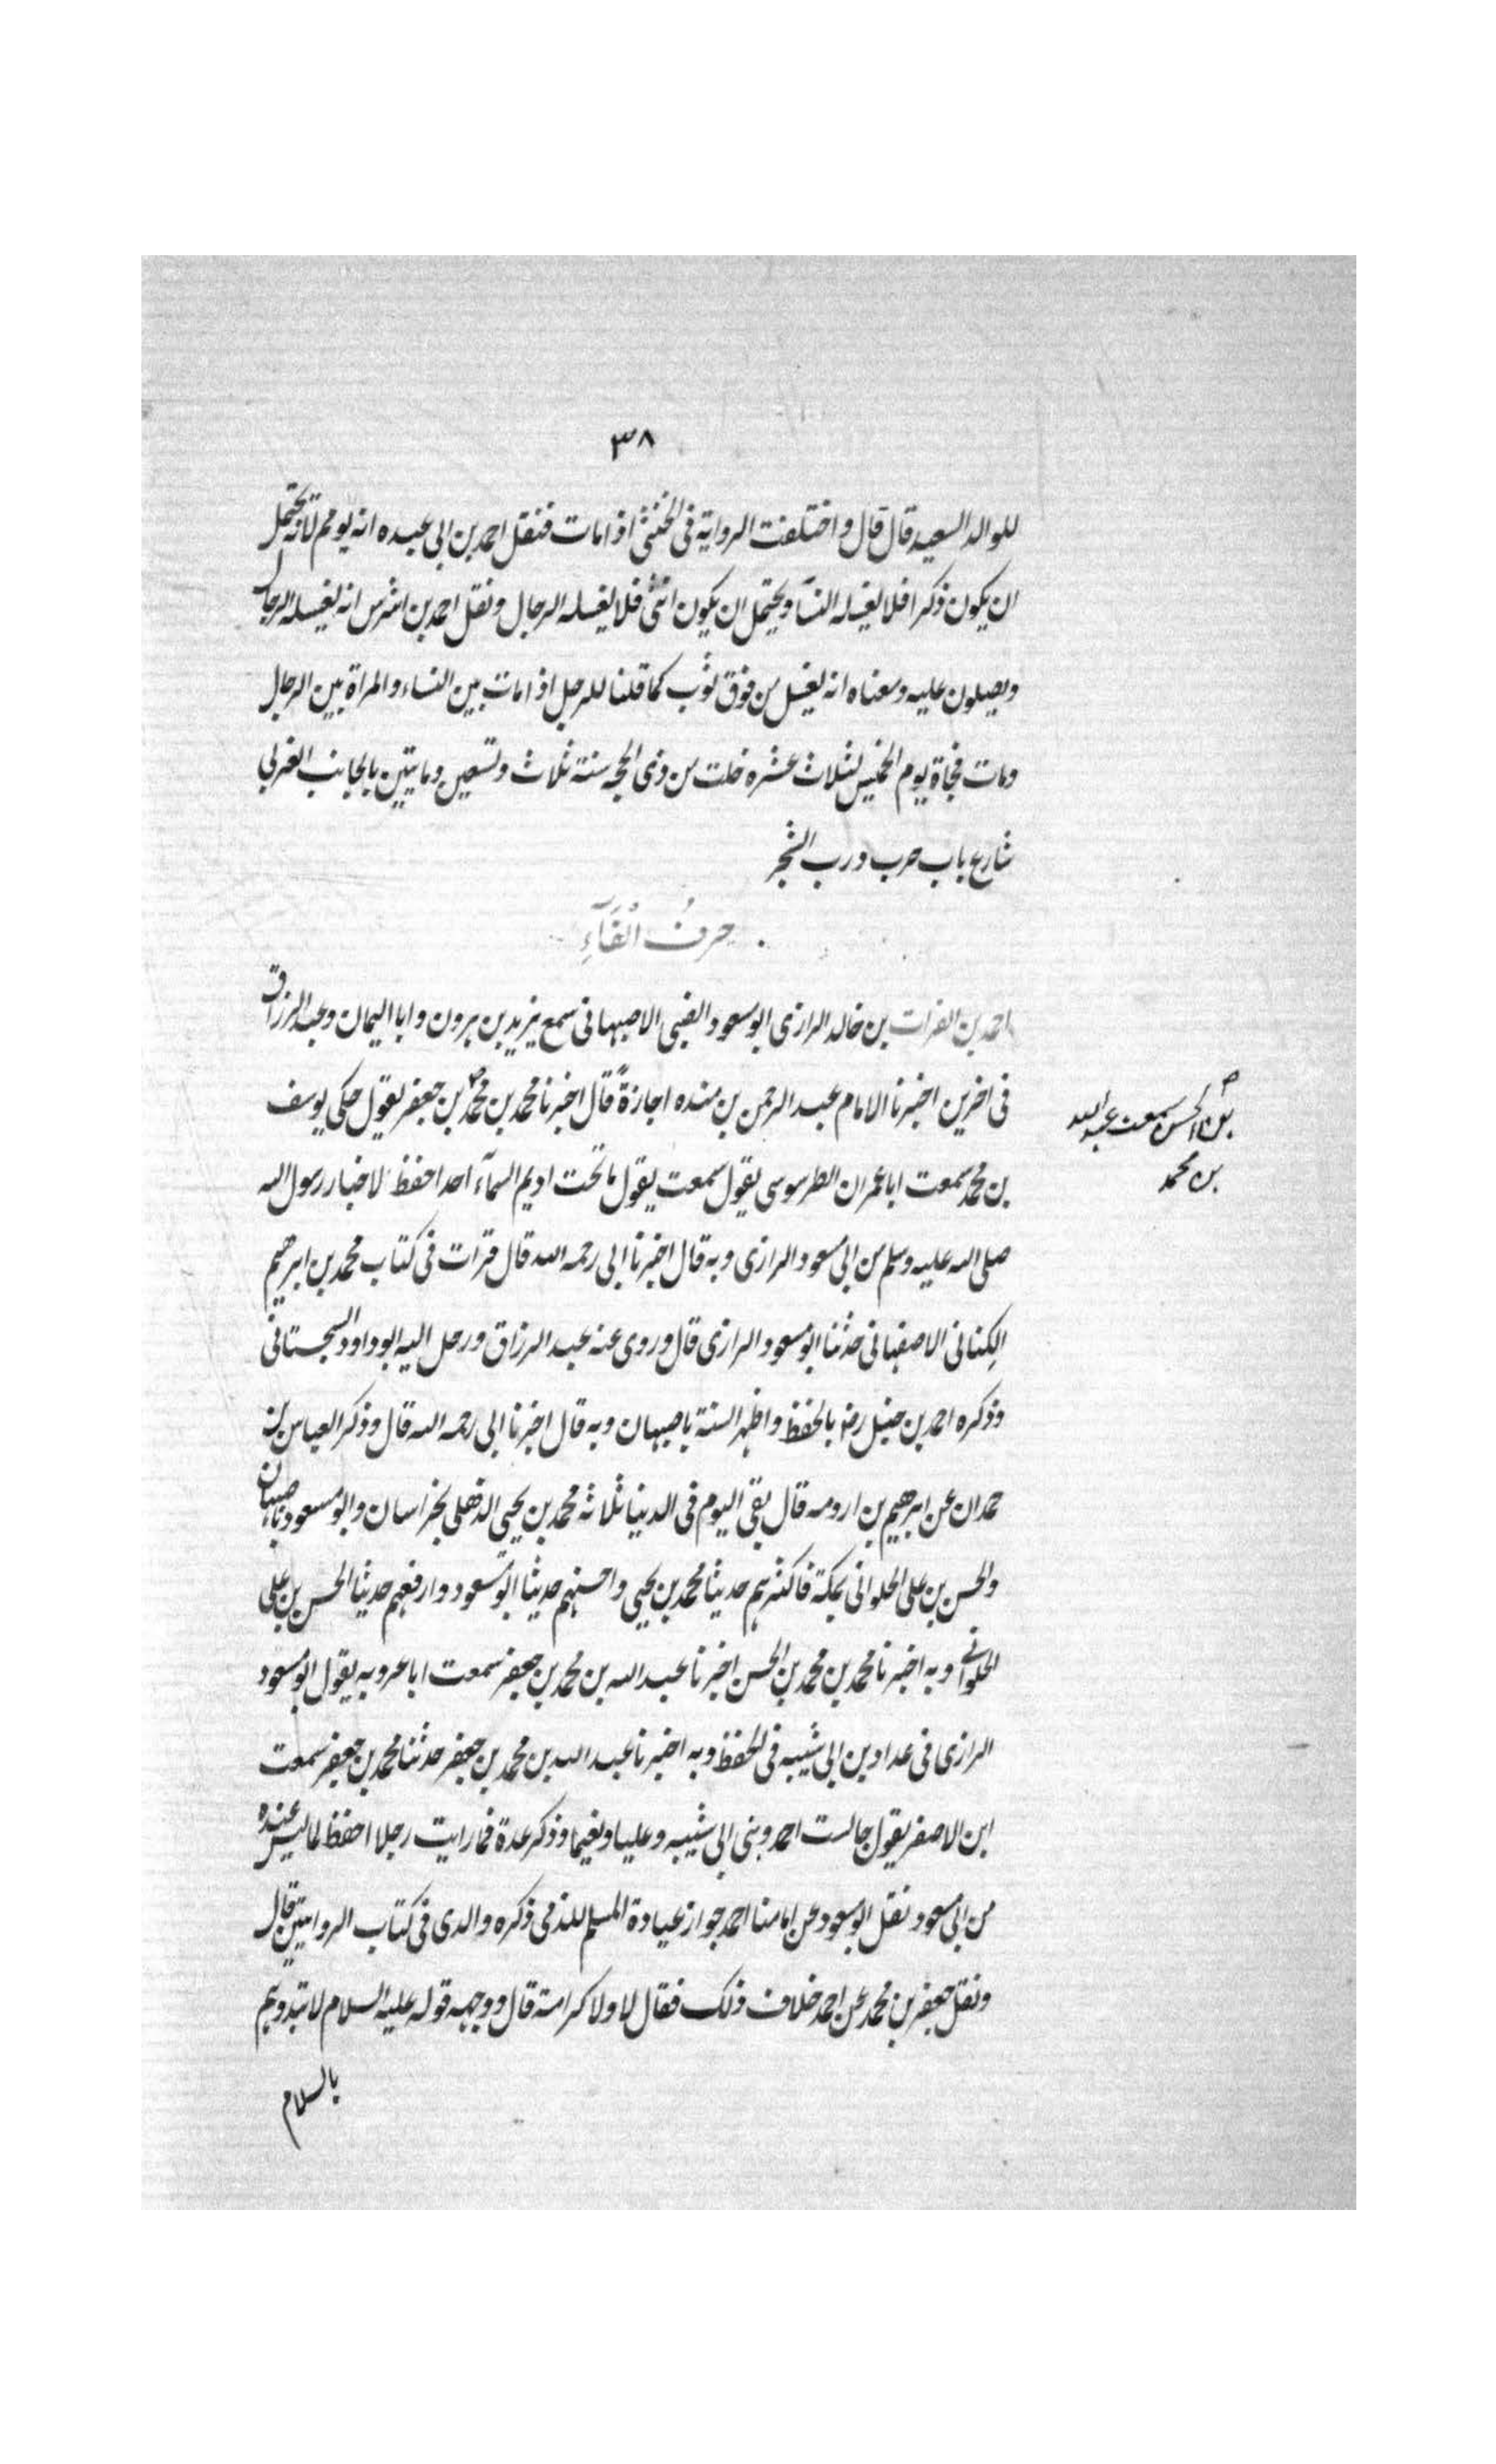 ٣٨
للوالد السعيد قال قال واختلفت الرواية فى الخنثى اذا مات فنقل احمد بن ابى عبده انه يومم لانه يحتمل
ان يكون ذكرا فلا يغسله النسآ ويحتمل ان يكون انثى فلا يغسله الرجال ونقل احمد بن اشرس انه يغسله الرجال
ويصلون عليه ومعناه انه يغسل من فوق ثوب كما قلنا للرجل اذا مات بين النساء والمراة بين الرجال
ومات فجاة يوم الخميس لثلاث عشره خلت من ذى الحجه سنة ثلاث وتسعين وماتين بالجانب الغربى
شارع باب حرب درب الشجر
حرفُ الْفَآءِ
احمد بن الفرات بن خالد الرازى ابو مسعود الضبى الاصبهانى سمع يزيد بن هرون وابا اليمان وعبد الرزاق
فى اخرين اخبرنا الامام عبد الرحمن بن منده اجازةً قال اخبرنا محمد بن محمد بن جعفر يقول حكى يوسف
بن الحسن سمعت عبد الله
بن محمد
بن محمد سمعت ابا عمران الطرسوسى يقول سمعت يقول ما تحت اديم السمآء احد احفظ لاخبار رسول الله
صلى الله عليه وسلم من ابى مسعود الرازى وبه قال اخبرنا ابى رحمه الله قال قرات فى كتاب محمد بن ابرهيم
الكِنانى الاصفهانى حدثنا ابو مسعود الرازى قال وروى عنه عبد الرزاق ورحل اليه ابو داود السجستانى
وذكره احمد بن حنبل رضـ بالحفظ واظهر السنة باصبهان وبه قال اخبرنا ابى رحمه الله قال وذكر العباس بن
حمدان عن ابرهيم بن ارومه قال بقى اليوم فى الدنيا ثلاثه محمد بن يحيى الذهلى بخراسان وابو مسعود باصبهان
والحسن بن على الحلوانى بمكة فاكثرهم حديثا محمد بن يحيى واحسنهم حديثا ابو مسعود وارفعهم حديثا الحسن بن على
الحلوانى وبه اخبرنا محمد بن محمد بن الحسن اخبرنا عبد الله بن محمد بن جعفر سمعت ابا عروبه يقول ابو مسعود
الرازى فى عداد بن ابى شيبه فى الحفظ وبه اخبرنا عبد الله بن محمد بن جعفر حدثنا محمد بن جعفر سمعت
ابن الاصفر يقول جالست احمد وبنى ابى شيبه وعليا ونعيما وذكر عدة فما رايت رجلا احفظ لما ليس عنده
من ابى مسعود نقل ابو مسعود عن امامنا احمد جواز عيادة المسلم للذمى ذكره والدى فى كتاب الروايتين قال
ونقل جعفر بن محمد عن احمد خلاف ذلك فقال لا ولا كرامة قال ووجهه قوله عليه السلام لا تبدوهم
بالسلام